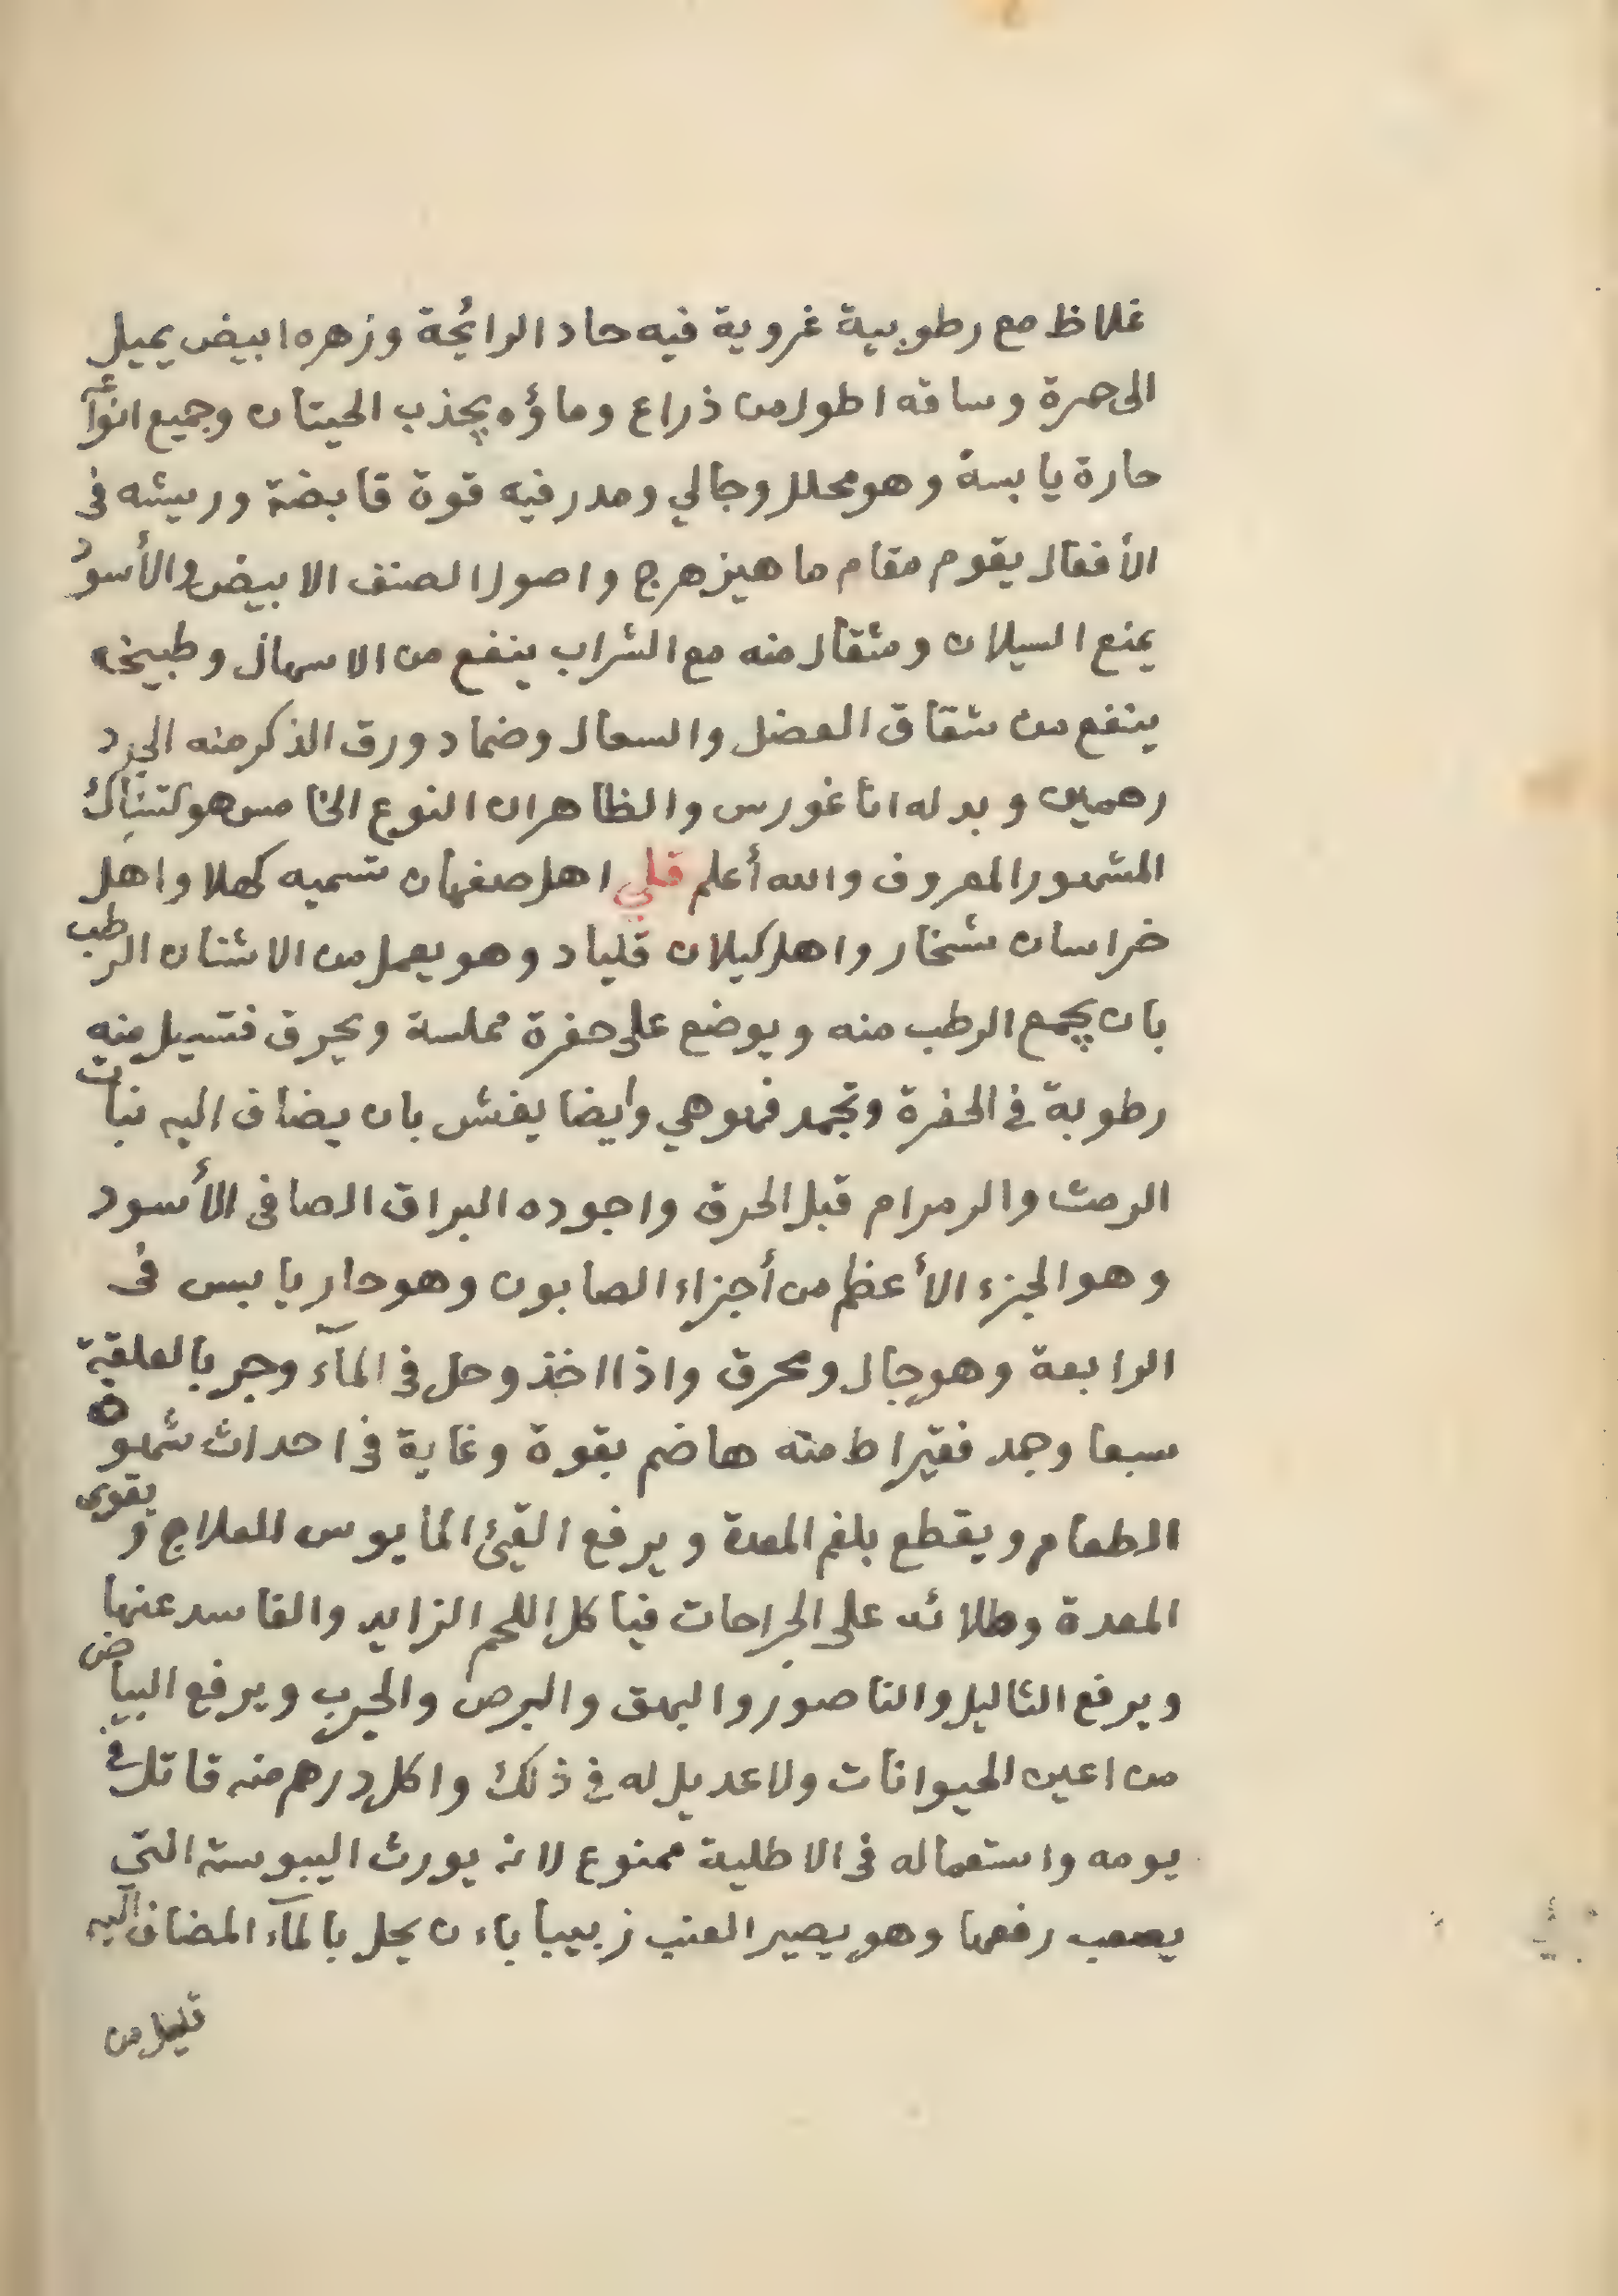 غلاظ مع رطوبية غروية فيه حاد الرائحة وزهره ابيض يميل
الى حمرة وساقه اطول من ذراع وماؤه يجذب الحيتان وجميع انواعه
حارة يابسة وهو محلل وجالي ومدر فيه قوة قابضة وريشه فى
الأفعال يقوم مقام ماهيزهرج واصول الصنف الابيض والأسود
يمنع السيلان ومثقال منه مع الشراب ينفع من الاسهال وطبيخه
ينفع من شقاق العضل والسعال وضماد ورق الذكر منه الجرد
رهمين وبدله اناغورس والظاهر ان النوع الخامس هو
المشهور المعروف والله أعلم قلي اهل صفهان تسميه كهلا واهل
خراسان شخار واهل كيلان قلياد وهو يعمل من الاشنان الرطب
بان يجمع الرطب منه ويوضع على حفرة مملسة ويحرق فتسيل منه
رطوبة في الحفرة وتجمد فهو هي وأيضا يغش بان يضاف اليه نبات
الرمث والرمرام قبل الحرق واجوده البراق الصافى الأسود
وهو الجزء الأعظم من أجزاء الصابون وهو حار يابس فى
الرابعة وهو جال ومحرق واذا اخذ وحل في المآء وجر بالعلقية
سبعا وجمد فقيراط منه هاضم بقوة وغاية في احداث شهوة
الطعام ويقطع بلغم المعدة ويرفع القيئ المايوس العلاج ويقوى
المعدة وطلائه على الجراحات فياكل اللحم الزايد والفاسد عنها
ويرفع الثاليل والناصور والبهق والبرص والجرب ويرفع البياض
من اعين الحيوانات ولا عديل له في ذلك واكل درهم منه قاتل في
يومه واستعماله فى الاطلية ممنوع لانه يورث اليبوسة التي
يصعب رفعها وهو يصير العنب زبيبا باءن يحل بالمآء المضاف اليه
قليل من